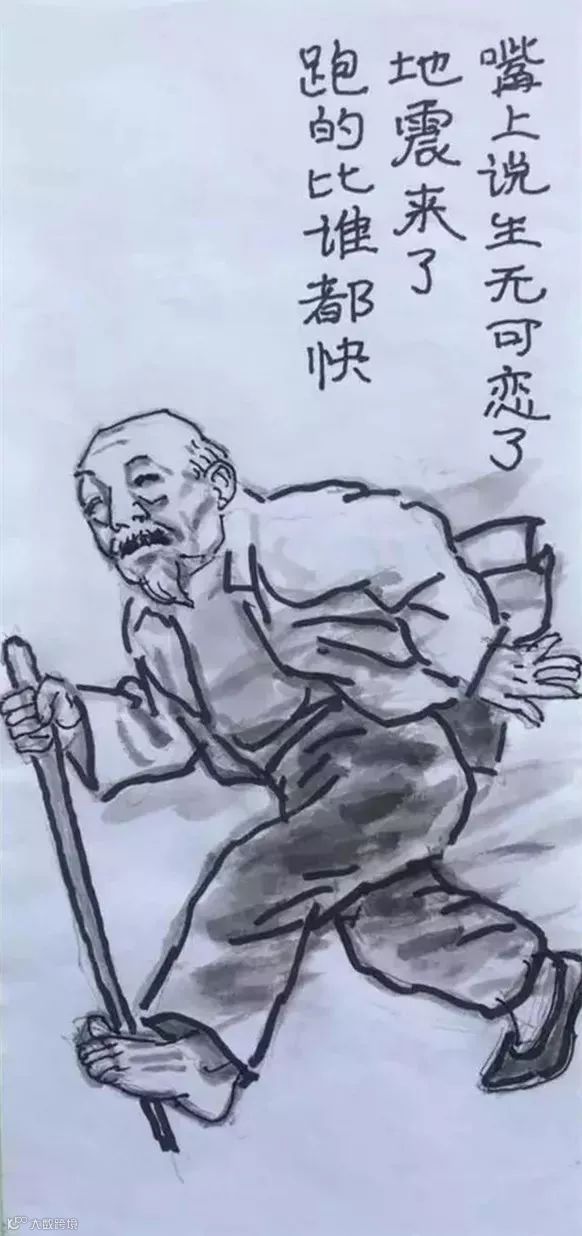 嘴上说生无可恋了
地震来了
跑的比谁都快
大数跨境